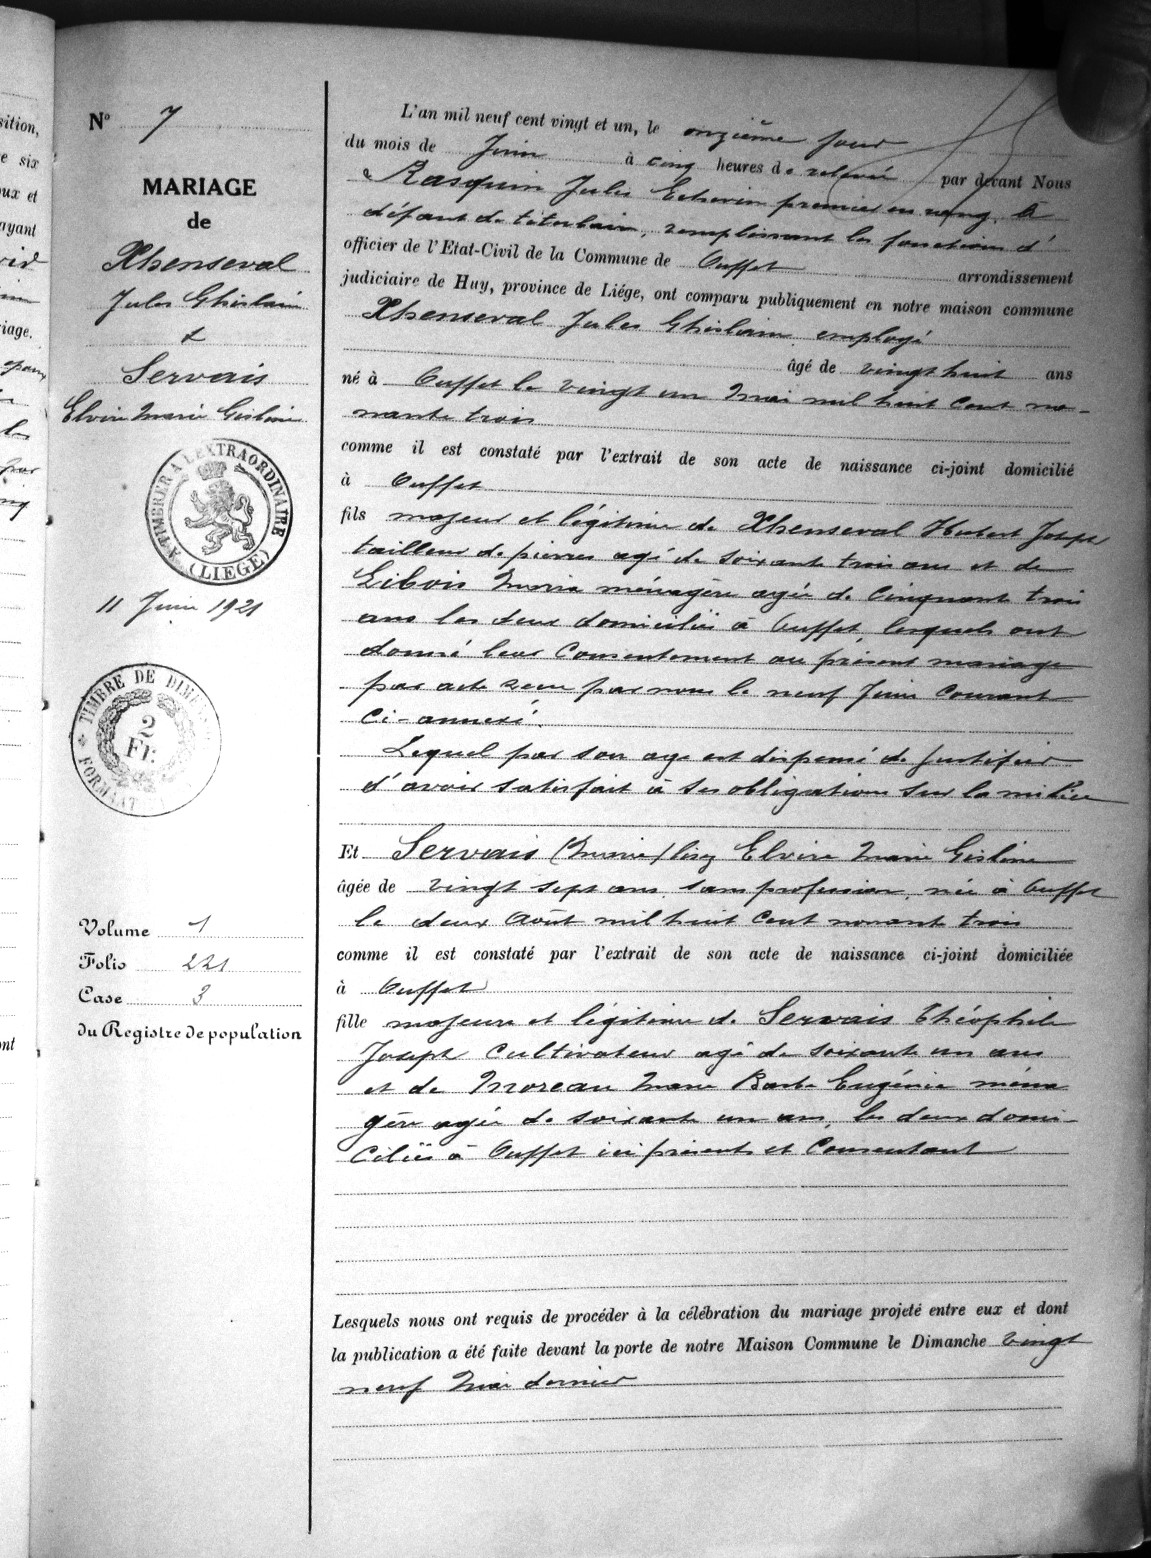 sition,
e six
ux et
ayant
riage.
N° 7
MARIAGE
de
Xhenseval
Jules Ghislain
&
Servais
Elvire Marie Gisline
A TIMBRER A L'EXTRAORDINAIRE
(LIEGE)
11 Juin 1921
TIMBRE DE DIM
2
Fr.
FORMAAT
Volume 1
Folio 221
Case 3
du Registre de population
L'an mil neuf cent vingt et un, le onzième jour
du mois de Juin à cinq heures de relevée par devant Nous
Rasquin Jules Echevin premier en rang, à
défaut de titulaire, remplissant les fonctions d'
officier de l'Etat-Civil de la Commune de Ouffet arrondissement
judiciaire de Huy, province de Liége, ont comparu publiquement en notre maison commune
Xhenseval Jules Ghislain, employé
âgé de vingt huit ans
né à Ouffet le vingt un Mai mil huit cent no-
nante trois
comme il est constaté par l'extrait de son acte de naissance ci-joint domicilié
à Ouffet
fils majeur et légitime de Xhenseval Hubert Joseph
tailleur de pierres agé de soixante trois ans et de
Libois Maria ménagère agée de Cinquante trois
ans les deux domiciliés à Ouffet, lesquels ont
donné leur Consentement au présent mariage
par acte reçu par nous le neuf Juin Courant
Ci-annexé.
Lequel par son age est dispensé de Justifier
d'avoir satisfait à ses obligations sur la milice
Et Servais (Marie) lisez Elvire Marie Gisline
âgée de vingt sept ans, sans profession, née à Ouffet
le deux Août mil huit Cent nonante trois
comme il est constaté par l'extrait de son acte de naissance ci-joint domiciliée
à Ouffet
fille majeure et légitime de Servais Théophile
Joseph Cultivateur agé de soixante un ans
et de Moreau Marie Barbe Eugénie ména
gère agée de soixante un ans, les deux domi-
ciliés à Ouffet ici présents et Consentant
Lesquels nous ont requis de procéder à la célébration du mariage projeté entre eux et dont
la publication a été faite devant la porte de notre Maison Commune le Dimanche vingt
neuf Mai dernier